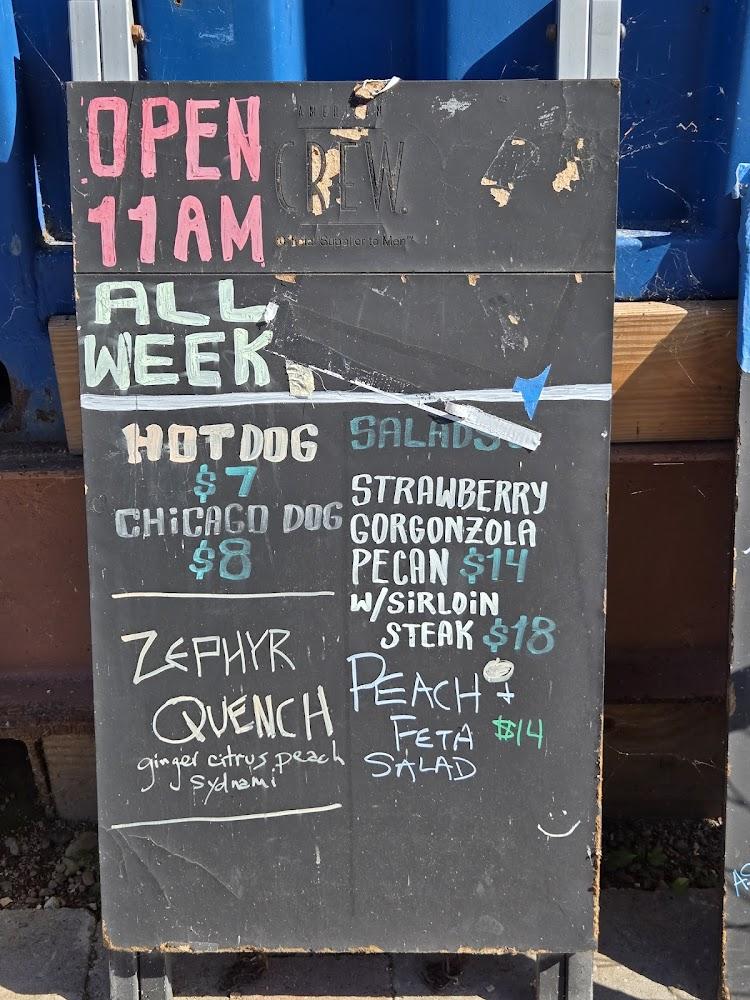 OPEN
11AM
AMERICAN
CREW
Official Supplier to Men™
ALL
WEEK
HOT DOG
$7
CHiCAGO DOG
$8
ZEPHYR
QUENCH
ginger citrus peach
sydnami
SALADS
STRAWBERRY
GORGONZOLA
PECAN $14
W/SiRLOiN
STEAK $18
PEACH +
FETA $14
SALAD